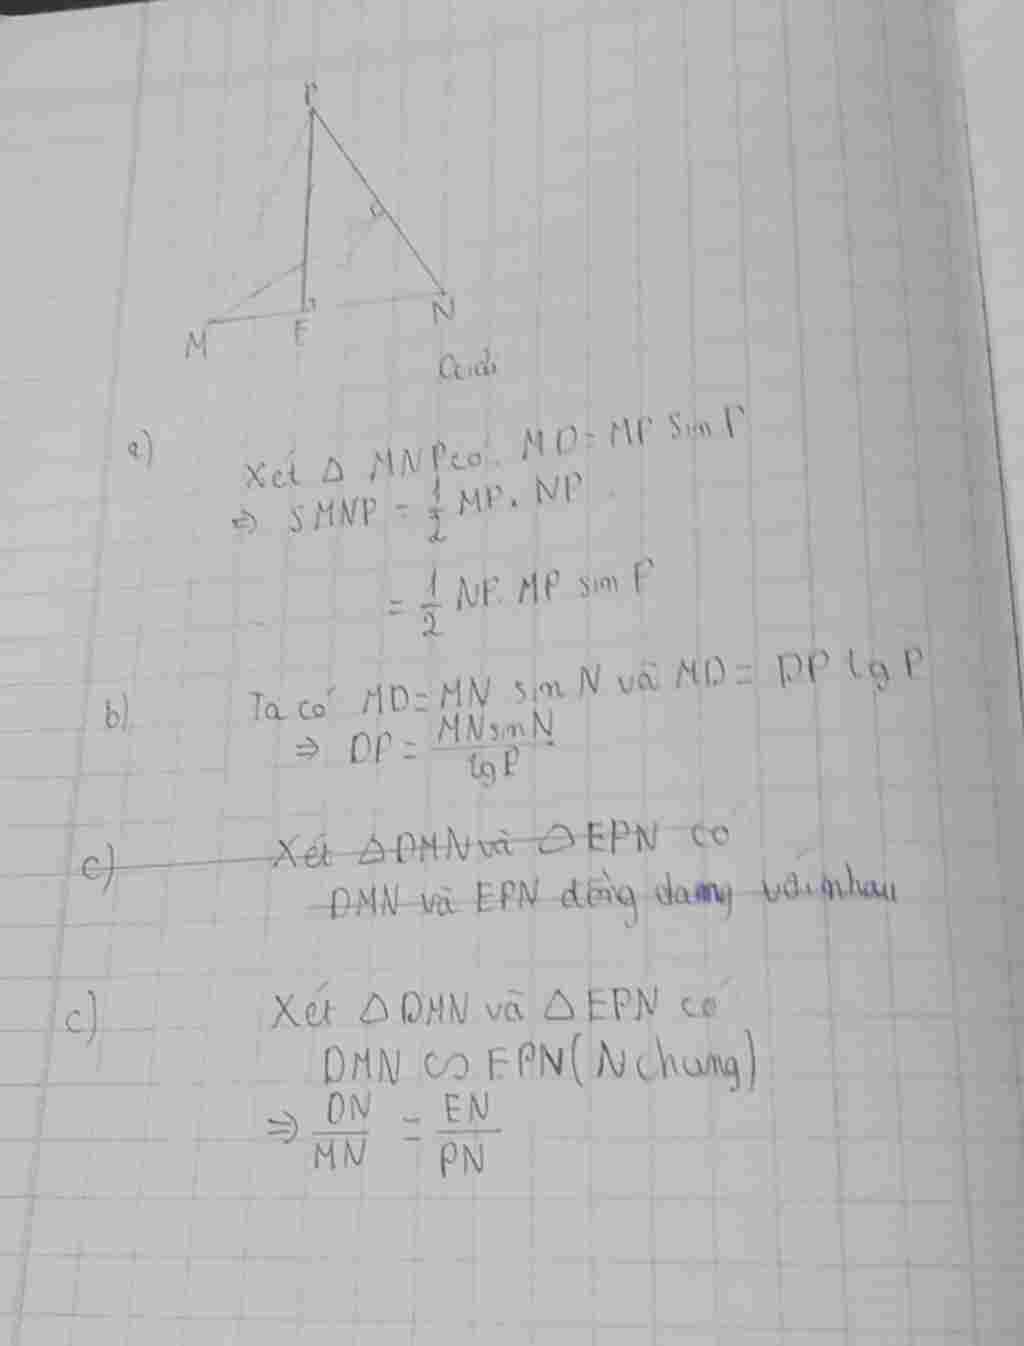 P
M
E
N
Giải
a)
Xét Δ MNP có: MD = MP sin P
⇒ SMNP = 1/2 MP. NP
= 1/2 NP. MP sin P
b) Ta có MD = MN sin N và MD = DP tg P
⇒ DP = MN sin N / tg P
c) Xét Δ DMN và Δ EPN có
DMN và EPN đồng dạng với nhau
c) Xét Δ DMN và Δ EPN có
DMN ∽ EPN (N chung)
⇒ DN/MN = EN/PN